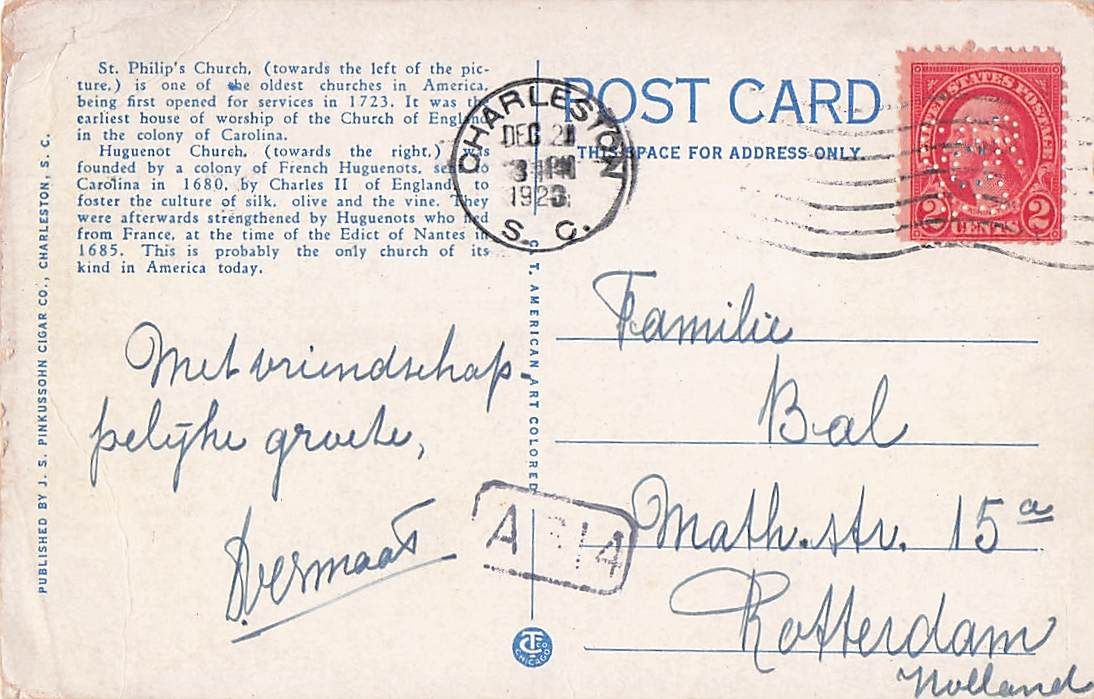 St. Philip's Church, (towards the left of the pic-
ture,) is one of the oldest churches in America,
being first opened for services in 1723. It was the
earliest house of worship of the Church of England
in the colony of Carolina.
Huguenot Church, (towards the right,) was
founded by a colony of French Huguenots, sent to
Carolina in 1680, by Charles II of England, to
foster the culture of silk, olive and the vine. They
were afterwards strengthened by Huguenots who fled
from France, at the time of the Edict of Nantes in
1685. This is probably the only church of its
kind in America today.
PUBLISHED BY J. S. PINKUSSOHN CIGAR CO., CHARLESTON, S. C.
Met vriendschap-
pelijke groete,
D. Vermaat
CHARLESTON
DEC
PM
S. C.
C. T. AMERICAN ART COLORED
CHICAGO
POST CARD
THIS SPACE FOR ADDRESS ONLY
UNITED STATES POSTAGE
2 CENTS 2
Familie
Bal
Math.str. 15a
Rotterdam
Holland
A 14